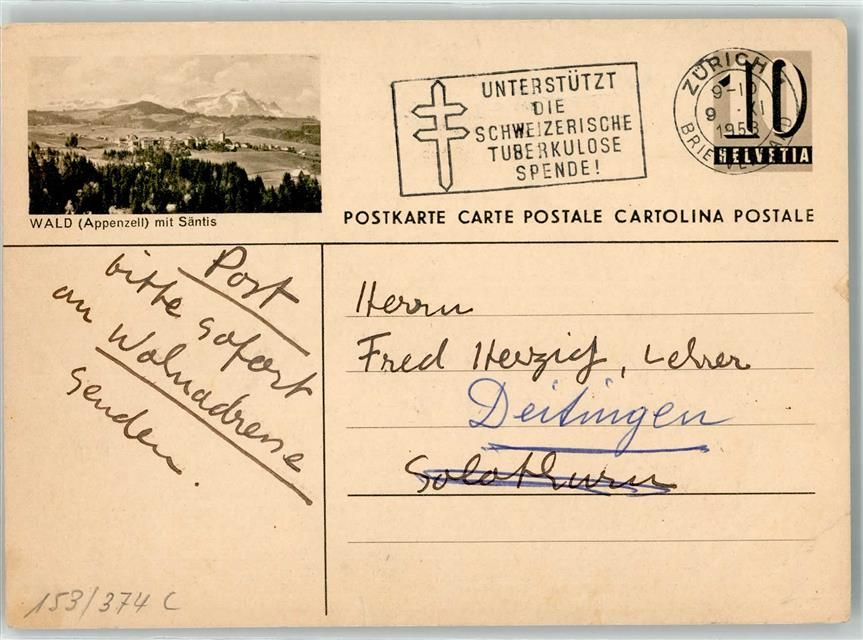 WALD (Appenzell) mit Säntis
UNTERSTÜTZT
DIE
SCHWEIZERISCHE
TUBERKULOSE
SPENDE!
ZÜRICH
9-10
9 XI
1953
10
HELVETIA
POSTKARTE CARTE POSTALE CARTOLINA POSTALE
Post
bitte sofort
an Wohnadresse
senden.
Herrn
Fred Herzig, Lehrer
Deitingen
Solothurn
153/374 C